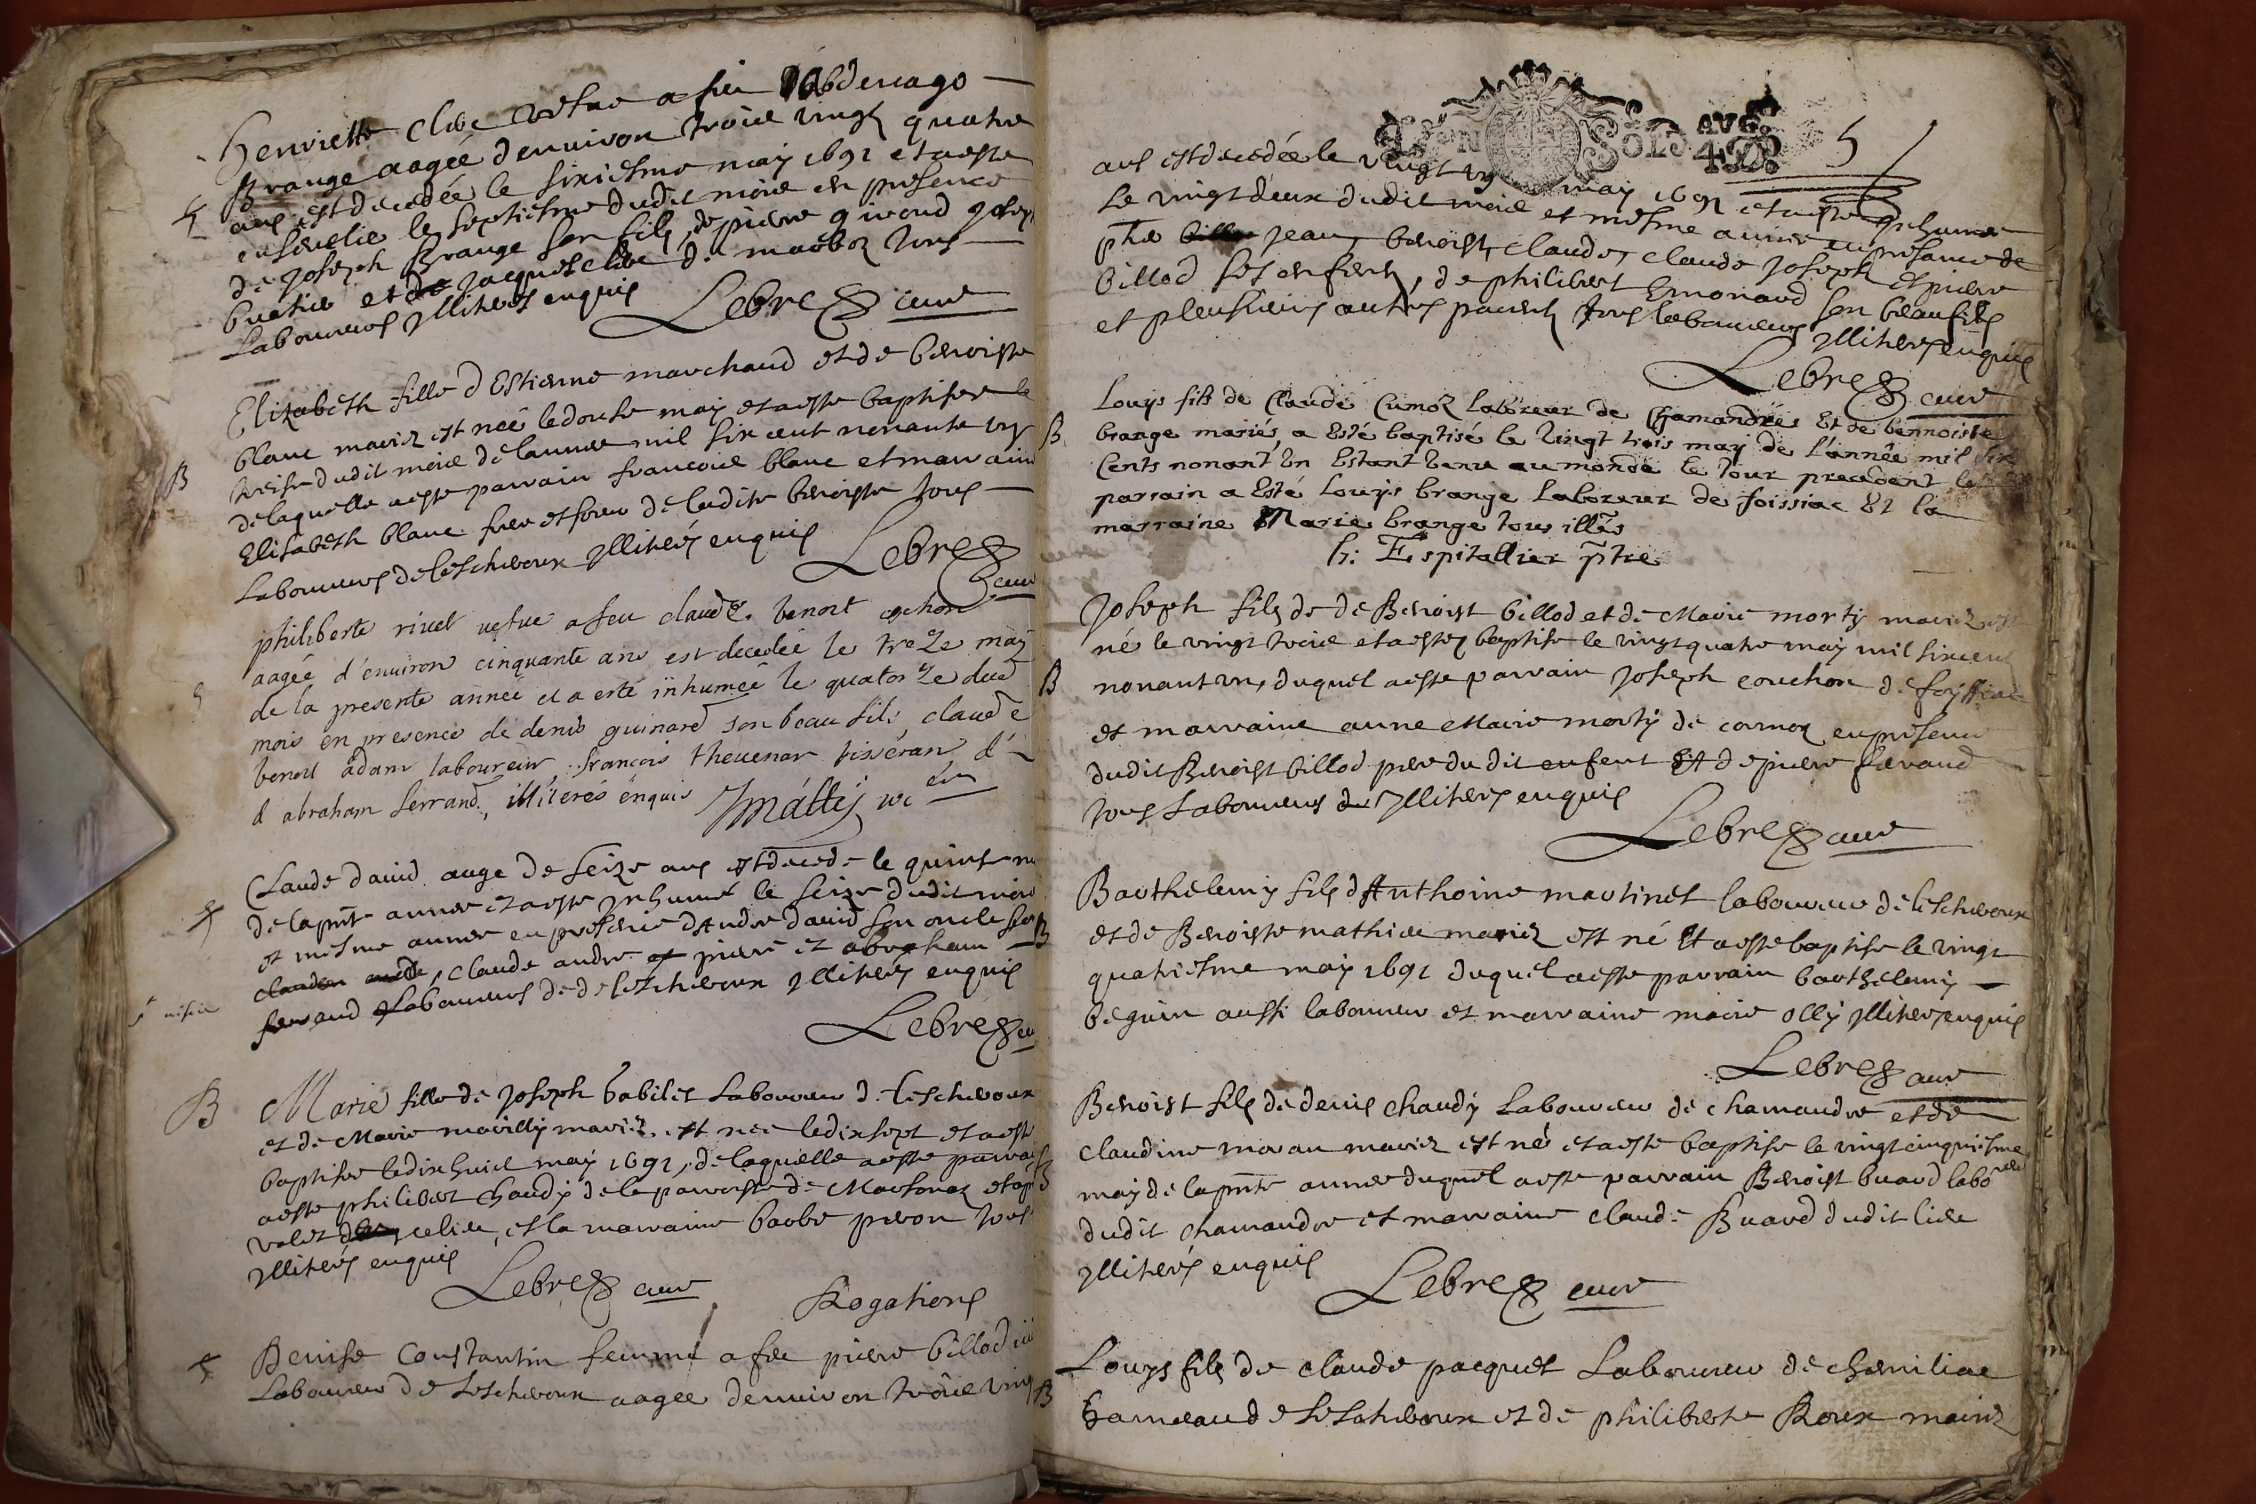 Henriette Clere vefue a feu Abdenago
Brange aagée denuiron trois vingt quatre
ans est decedée le sixiesme may 1691 et a esté
enseuelie le septiesme dudit mois en presence
de Joseph Brange son fils, de pierre giroud Joseph
buatier et Jacques Clere de marboz tous
Laboureurs Illiterés enquis
Lebrez curé
Elizabeth fille d Estienne marchand et de benoiste
blanc mariez est née le douse may et a esté baptisee le
treise dudit mois de lannee mil six cent nonante un
de laquelle a esté parrain francois blanc et marraine
Elisabeth blanc frere et soeur de ladite benoiste tous
Laboureurs de Lescheroux Illiterés enquis
Lebrez
curé
philiberte riuet uefue a feu claude benoit cochon
aagée d'enuiron cinquante ans est decedée le treze may
de la presente année et a esté inhumée le quatorze dud
mois en presence de denis guinard son beau fils claude
benoit adam laboureur françois theuenar tisseran d
d abraham ferrand, illiterés enquis Mattey vic
Claude dauid auge de seize ans est decede le quinse
de la pnte annee et a esté Inhumé le seize dudit mois
et mesme annee en presence d'Andre dauid son oncle
claude andre pierre et abraham
ferrand Laboureurs de de Lescheroux Illiterés enquis
Lebrez
B Marie fille de Joseph babilet Laboureur de Lescheroux
et de Marie mareilly mariez est née le dixsept et a esté
baptisee le dix huict may 1691, de laquelle a esté parrain
a esté philibert Chaudy de la parroisse de Marsonaz
valet, et la marraine barbe peron tous
Illiterés enquis
Lebrez curé
Rogations
Denise Constantin femme a feu pierre billod
Laboureur de Lescheroux aagee denuiron trois vingt
LYON SOLS AVG 5
ans est decedée le vingt un may 1691 et a esté Inhumee
Le vingt deux dudit mois et mesme annee en presance de
Jean, benoist, claude, claude Joseph et pierre
billod ses enfens, de philibert Emonard son beau fils
et plusieurs autres parens tous laboureurs
Illiterés enquis
Lebrez curé
Louys fils de Claude Cumoz laboureur de Chamandrés Et de bennoiste
B brange mariés a Esté baptisé le vingt trois may de l'année mil six
Cents nonant Un Estant venu au monde le Jour precedent
parrain a Esté Louys brange laboureur de foissiac Et la
marraine Marie brange tous illés
h: Espitallier ptre
Joseph fils de de Benoist billod et de Marie morty mariez est
né le vingt trois et a esté baptise le vingt quatre may mil six cent
B nonant un, duquel a esté parrain Joseph couchon de foyssiac
et marraine anne Marie morty de cormoz en presence
dudit Benoist billod pere du dit enfent Et de pierre ferraud
tous Laboureurs Illiterés enquis
Lebrez curé
Barthelemy fils d'Anthoine martinet laboureur de Lescheroux
et de Benoiste mathieu mariez est né Et a esté baptise le vingt
quatriesme may 1691 duquel a esté parrain barthelemy
beguin aussi laboureur et marraine marie olly Illiterés enquis
Lebrez curé
Benoist fils de denis chaudy Laboureur de chamandre et de
claudine moran mariez est né et a esté baptise le vingt cinquiesme
may de la pnte annee duquel a esté parrain Benoist buard labo
dudit chamandre et marraine claude Buard dudit lieu
Illiterés enquis
Lebrez curé
Louys fils de claude pacquet Laboureur de cheniliac
B hameau de Lescheroux et de philiberte Roux mariez